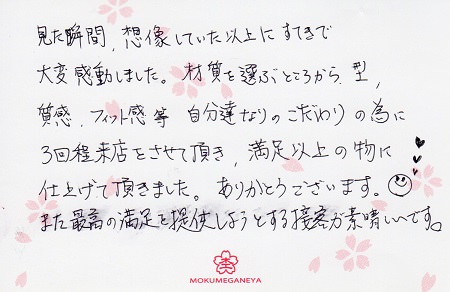 見た瞬間、想像していた以上にすてきで
大変感動しました。材質を選ぶところから型、
質感、フィット感等 自分達なりのこだわりの為に
3回程来店をさせて頂き、満足以上の物に
仕上げて頂きました。ありがとうございます。
また最高の満足を提供しようとする接客が素晴しいです。
MOKUMEGANEYA